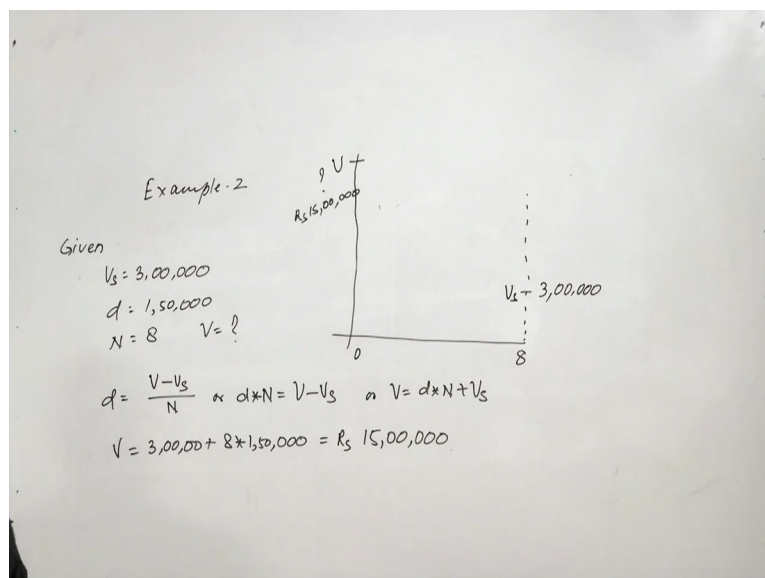 Example-2
? V
Rs 15,00,000
Given
Vs = 3,00,000
d = 1,50,000
N = 8 V= ?
Vs 3,00,000
0
8
d = V-Vs / N or d*N = V-Vs or V= d*N+Vs
V = 3,00,00 + 8*1,50,000 = Rs 15,00,000